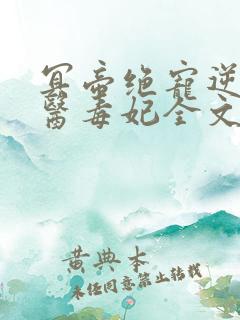 冥帝绝寵逆
醫毒妃全文
黄典本
未经同意禁止转载